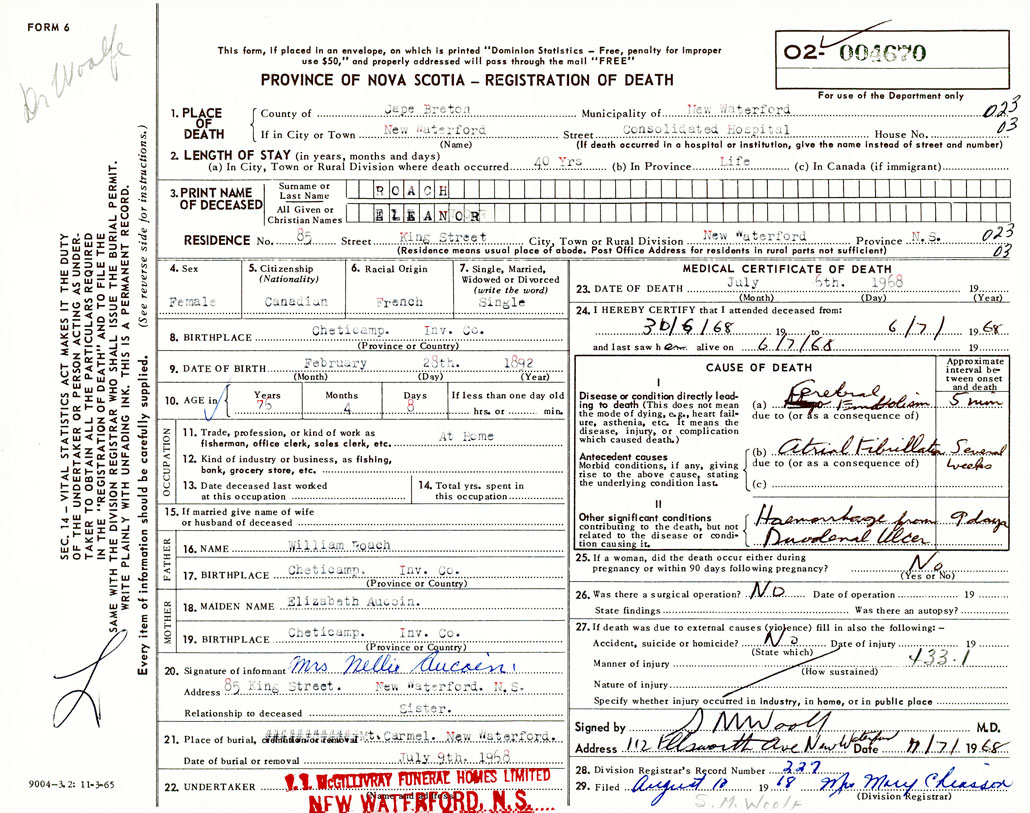 FORM 6
Dr Woolfe
This form, if placed in an envelope, on which is printed "Dominion Statistics – Free, penalty for improper
use $50," and properly addressed will pass through the mail "FREE"
PROVINCE OF NOVA SCOTIA – REGISTRATION OF DEATH
O2- 004670
For use of the Department only
1. PLACE OF DEATH
County of Cape Breton Municipality of New Waterford 023
If in City or Town New Waterford Street Consolidated Hospital House No. 03
(Name) (If death occurred in a hospital or institution, give the name instead of street and number)
2. LENGTH OF STAY (in years, months and days)
(a) In City, Town or Rural Division where death occurred 40 Yrs (b) In Province Life (c) In Canada (if immigrant)
3. PRINT NAME OF DECEASED
Surname or Last Name ROACH
All Given or Christian Names ELEANOR
RESIDENCE No. 85 Street King Street City, Town or Rural Division New Waterford Province N.S. 023
(Residence means usual place of abode. Post Office Address for residents in rural parts not sufficient) 03
4. Sex
Female
5. Citizenship
(Nationality)
Canadian
6. Racial Origin
French
7. Single, Married,
Widowed or Divorced
(write the word)
Single
8. BIRTHPLACE Cheticamp. Inv. Co.
(Province or Country)
9. DATE OF BIRTH February 28th. 1892
(Month) (Day) (Year)
10. AGE in
Years Months Days If less than one day old
76 4 8 hrs. or min.
OCCUPATION
11. Trade, profession, or kind of work as
fisherman, office clerk, sales clerk, etc. At Home
12. Kind of industry or business, as fishing,
bank, grocery store, etc.
13. Date deceased last worked
at this occupation
14. Total yrs. spent in
this occupation
15. If married give name of wife
or husband of deceased
FATHER
16. NAME William Roach
17. BIRTHPLACE Cheticamp. Inv. Co.
(Province or Country)
MOTHER
18. MAIDEN NAME Elizabeth Aucoin.
19. BIRTHPLACE Cheticamp. Inv. Co.
(Province or Country)
20. Signature of informant Mrs Nellie Aucoin
Address 85 King Street. New Waterford. N.S.
Relationship to deceased Sister.
21. Place of burial, cremation or removal Mt. Carmel. New Waterford.
Date of burial or removal July 9th. 1968
22. UNDERTAKER McGILLIVRAY FUNERAL HOMES LIMITED
(Name and address)
NEW WATERFORD, N.S.
MEDICAL CERTIFICATE OF DEATH
23. DATE OF DEATH July 6th. 1968 19
(Month) (Day) (Year)
24. I HEREBY CERTIFY that I attended deceased from:
30/6/68 19 to 6/7/ 1968
and last saw her alive on 6/7/68 19
CAUSE OF DEATH
Approximate
interval be-
tween onset
and death
I
Disease or condition directly lead-
ing to death (This does not mean
the mode of dying, e.g., heart fail-
ure, asthenia, etc. It means the
disease, injury, or complication
which caused death.)
(a) Cerebral Embolism 5 min
due to (or as a consequence of)
Antecedent causes
Morbid conditions, if any, giving
rise to the above cause, stating
the underlying condition last.
(b) Atrial Fibrillation Several
due to (or as a consequence of) weeks
(c)
II
Other significant conditions
contributing to the death, but not
related to the disease or condi-
tion causing it.
Haemorrhage from 9 days
Duodenal Ulcer
25. If a woman, did the death occur either during
pregnancy or within 90 days following pregnancy? No
(Yes or No)
26. Was there a surgical operation? NO Date of operation 19
State findings Was there an autopsy?
27. If death was due to external causes (violence) fill in also the following:–
Accident, suicide or homicide? No Date of injury 19
(State which)
Manner of injury 433.1
(How sustained)
Nature of injury
Specify whether injury occurred in industry, in home, or in public place
Signed by S M Woolf M.D.
Address 112 Ellsworth Ave New Waterford Date 11/7/ 1968
28. Division Registrar's Record Number 227
29. Filed August 10 1968 Mrs Mary Chiasson
(Division Registrar)
S. M. Woolf
SEC. 14 – VITAL STATISTICS ACT MAKES IT THE DUTY
OF THE UNDERTAKER OR PERSON ACTING AS UNDER-
TAKER TO OBTAIN ALL THE PARTICULARS REQUIRED
IN THE "REGISTRATION OF DEATH" AND TO FILE THE
SAME WITH THE DIVISION REGISTRAR WHO SHALL ISSUE THE BURIAL PERMIT.
WRITE PLAINLY WITH UNFADING INK. THIS IS A PERMANENT RECORD.
Every item of information should be carefully supplied. (See reverse side for instructions.)
9004–3.2: 11-3-65